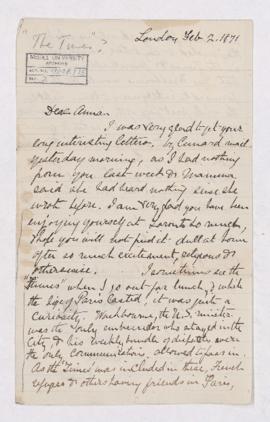 "The Times"?
London Feb 2. 1871
McGILL UNIVERSITY
ARCHIVES
ACC. NO.
REF.
Dear Anna
I was very glad to get your
long interesting letters by Cunard mail
yesterday morning, as I had nothing
from you last week & Mamma
said she had heard nothing since she
wrote before. I am very glad you have been
enjoying yourself at Toronto so much,
I hope you will not find it dull at home
after so much excitement, religious &
otherwise. I sometimes see the
"Times" when I go out for lunch, & while
the siege of Paris lasted, it was just a
curiosity. Washbourne, the U.S. minister
was the only ambassador who stayed in the
City, & his weekly bundle of despatches were
the only communications allowed to pass in.
As the "Times" was included in these, French
refugees & others having friends in Paris,